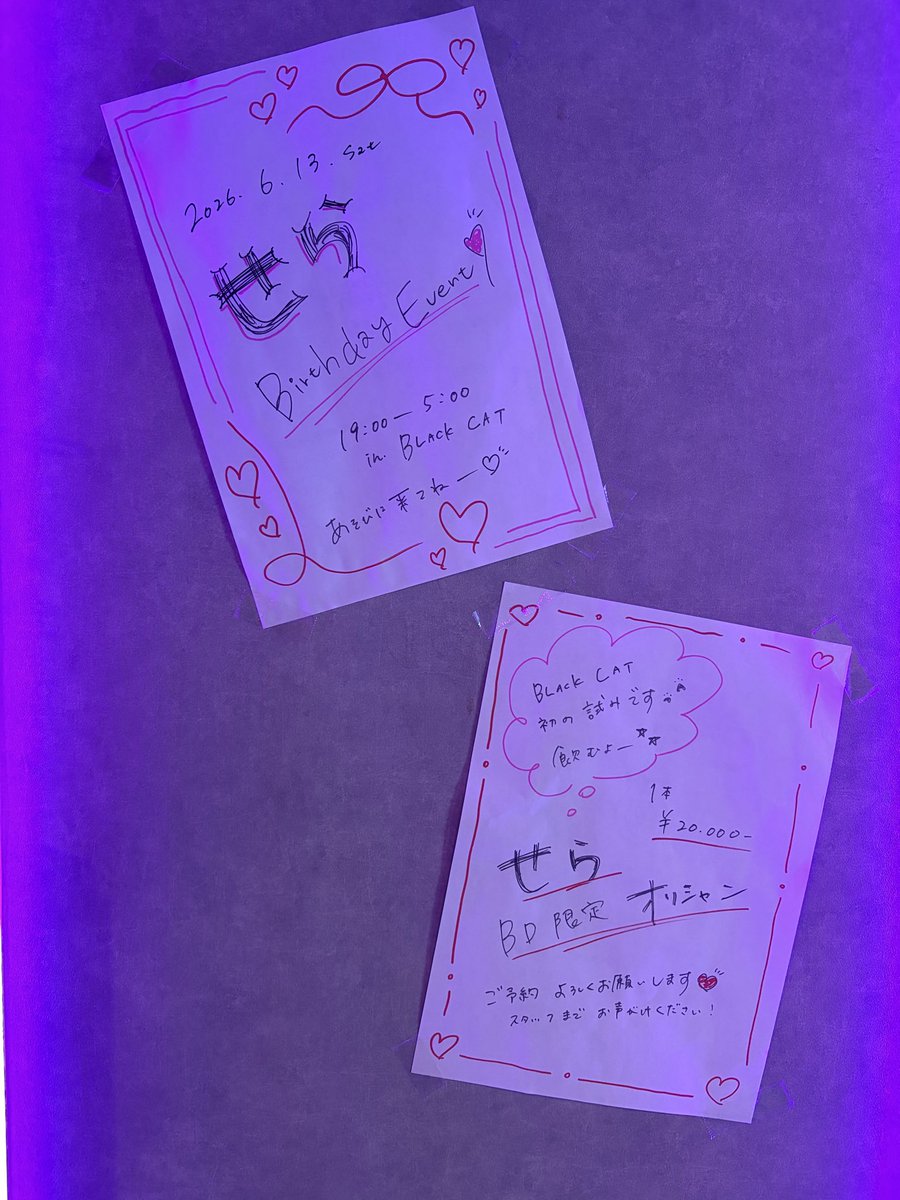 2026. 6. 13. sat
せら
Birthday Event
19:00ー5:00
in BLACK CAT
あそびに来てねー♡
BLACK CAT
初の試みです
飲むよー
1本
¥20.000-
せら
BD限定 オリシャン
ご予約 よろしくお願いします
スタッフまで お声がけください!